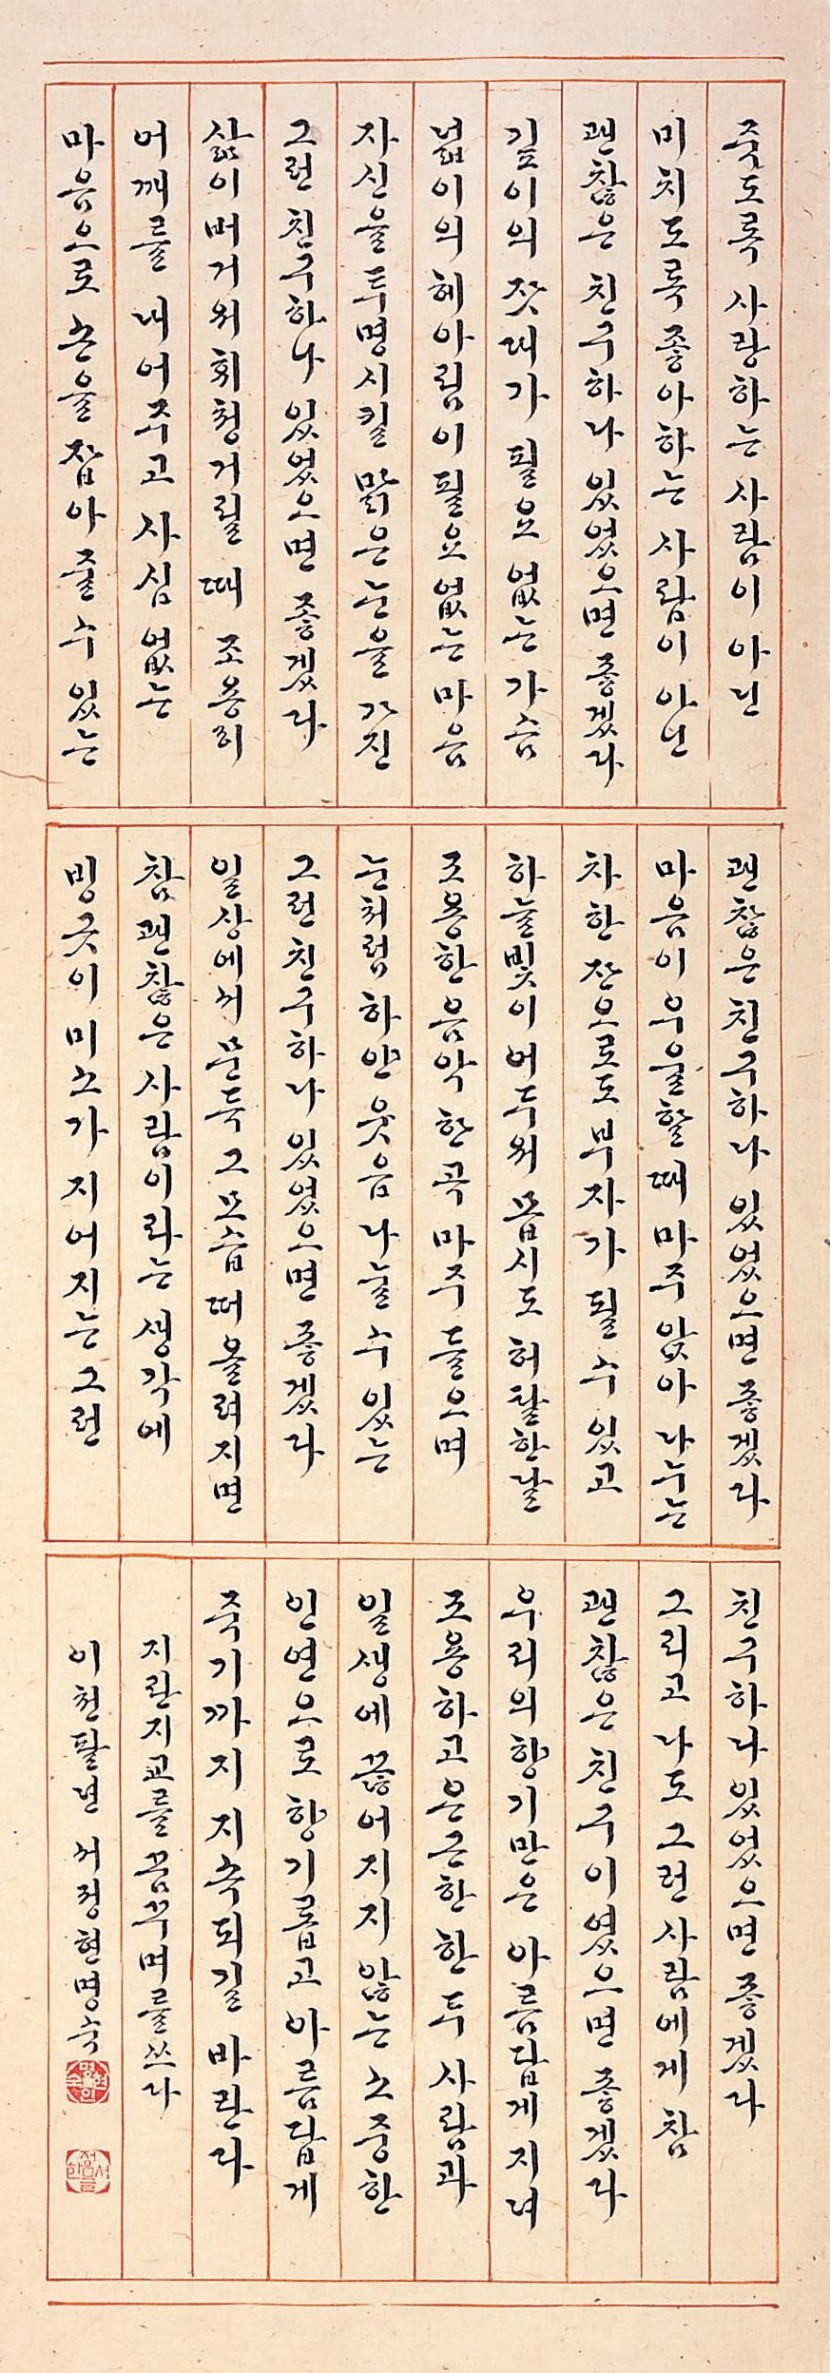 죽도록 사랑하는 사람이 아닌
미치도록 좋아하는 사람이 아닌
괜찮은 친구하나 있었으면 좋겠다
깊이의 잣대가 필요 없는 가슴
넓이의 헤아림이 필요 없는 마음
자신을 투명시킬 맑은 눈을 가진
그런 친구하나 있었으면 좋겠다
삶이 버거워 휘청거릴 때 조용히
어깨를 내어주고 사심 없는
마음으로 손을 잡아 줄 수 있는
괜찮은 친구하나 있었으면 좋겠다
마음이 우울할 때 마주 앉아 나누는
차 한 잔으로도 부자가 될 수 있고
하늘빛이 어두워 몹시도 허탈한 날
조용한 음악 한 곡 마주 들으며
눈처럼 하얀 웃음 나눌 수 있는
그런 친구하나 있었으면 좋겠다
일상에서 문득 그 모습 떠올려지면
참 괜찮은 사람이라는 생각에
빙긋이 미소가 지어지는 그런
친구하나 있었으면 좋겠다
그리고 나도 그런 사람에게 참
괜찮은 친구이였으면 좋겠다
우리의 향기만은 아름답게 지녀
조용하고 은근한 한 두 사람과
일생에 끊어지지 않는 소중한
인연으로 향기롭고 아름답게
죽기까지 지속되길 바란다
지란지교를 꿈꾸며를 쓰다
이천팔년 서정현명숙